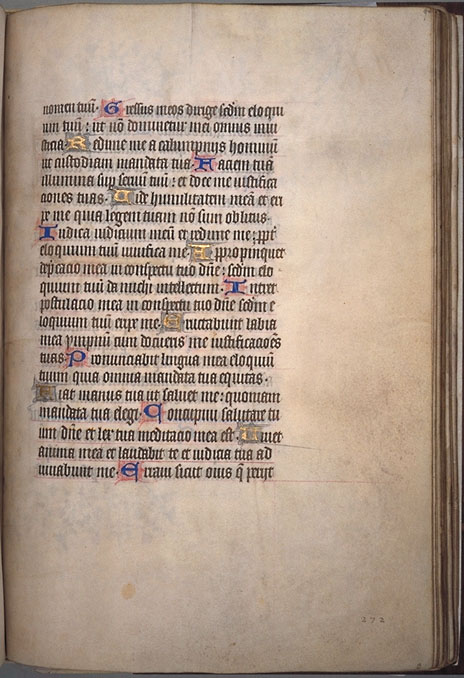 nomen tuū. Gressus meos dirige scdm eloqui
um tuū: ut nō dominetur mei omnis iniu
sticia. Redime me a calumpnijs hominū
ut custodiam mandata tua. Faciem tuā
illumina sup seruū tuū: et doce me iustifica
ciones tuas. Uide humilitatem meā et eri
pe me quia legem tuam nō sum oblitus.
Iudica iudicium meū et redime me: ppt̄
eloquium tuū uiuifica me. Appropinquet
dep̄cacio mea in conspectu tuo dn̄e: scdm elo
quium tuū da michi intellectum. Intret
postulacio mea in conspectu tuo dn̄e scdm e
loquium tuū eripe me. Eructabunt labia
mea ympnū cum docueris me iustificacōes
tuas. Pronunciabit lingua mea eloquiū
tuum quia omnia mandata tua equitas.
Fiat manus tua ut saluet me: quoniam
mandata tua elegi. Concupiui salutare tu
um dn̄e et lex tua meditacio mea est. Uiuet
anima mea et laudabit te et iudicia tua ad
iuuabunt me. Erraui sicut ouis q̄ perijt
272